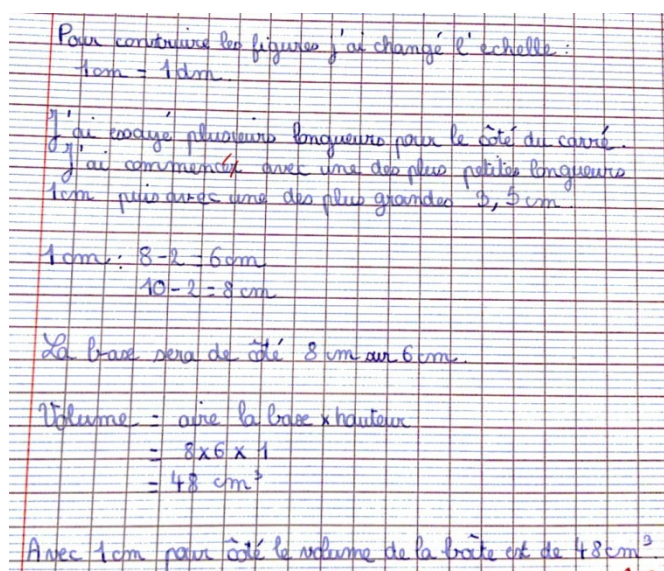 Pour construire les figures j'ai changé l'echelle :
1cm = 1dm.
J'ai essayé plusieurs longueurs pour le côté du carré.
J'ai commencé avec une des plus petites longueurs
1cm puis avec une des plus grandes 3,5 cm
1cm : 8-2 = 6cm
10-2 = 8cm
La base sera de côté 8 cm sur 6 cm.
Volume = aire la base x hauteur
= 8x6 x 1
= 48 cm³
Avec 1cm pour côté le volume de la boîte est de 48cm³.